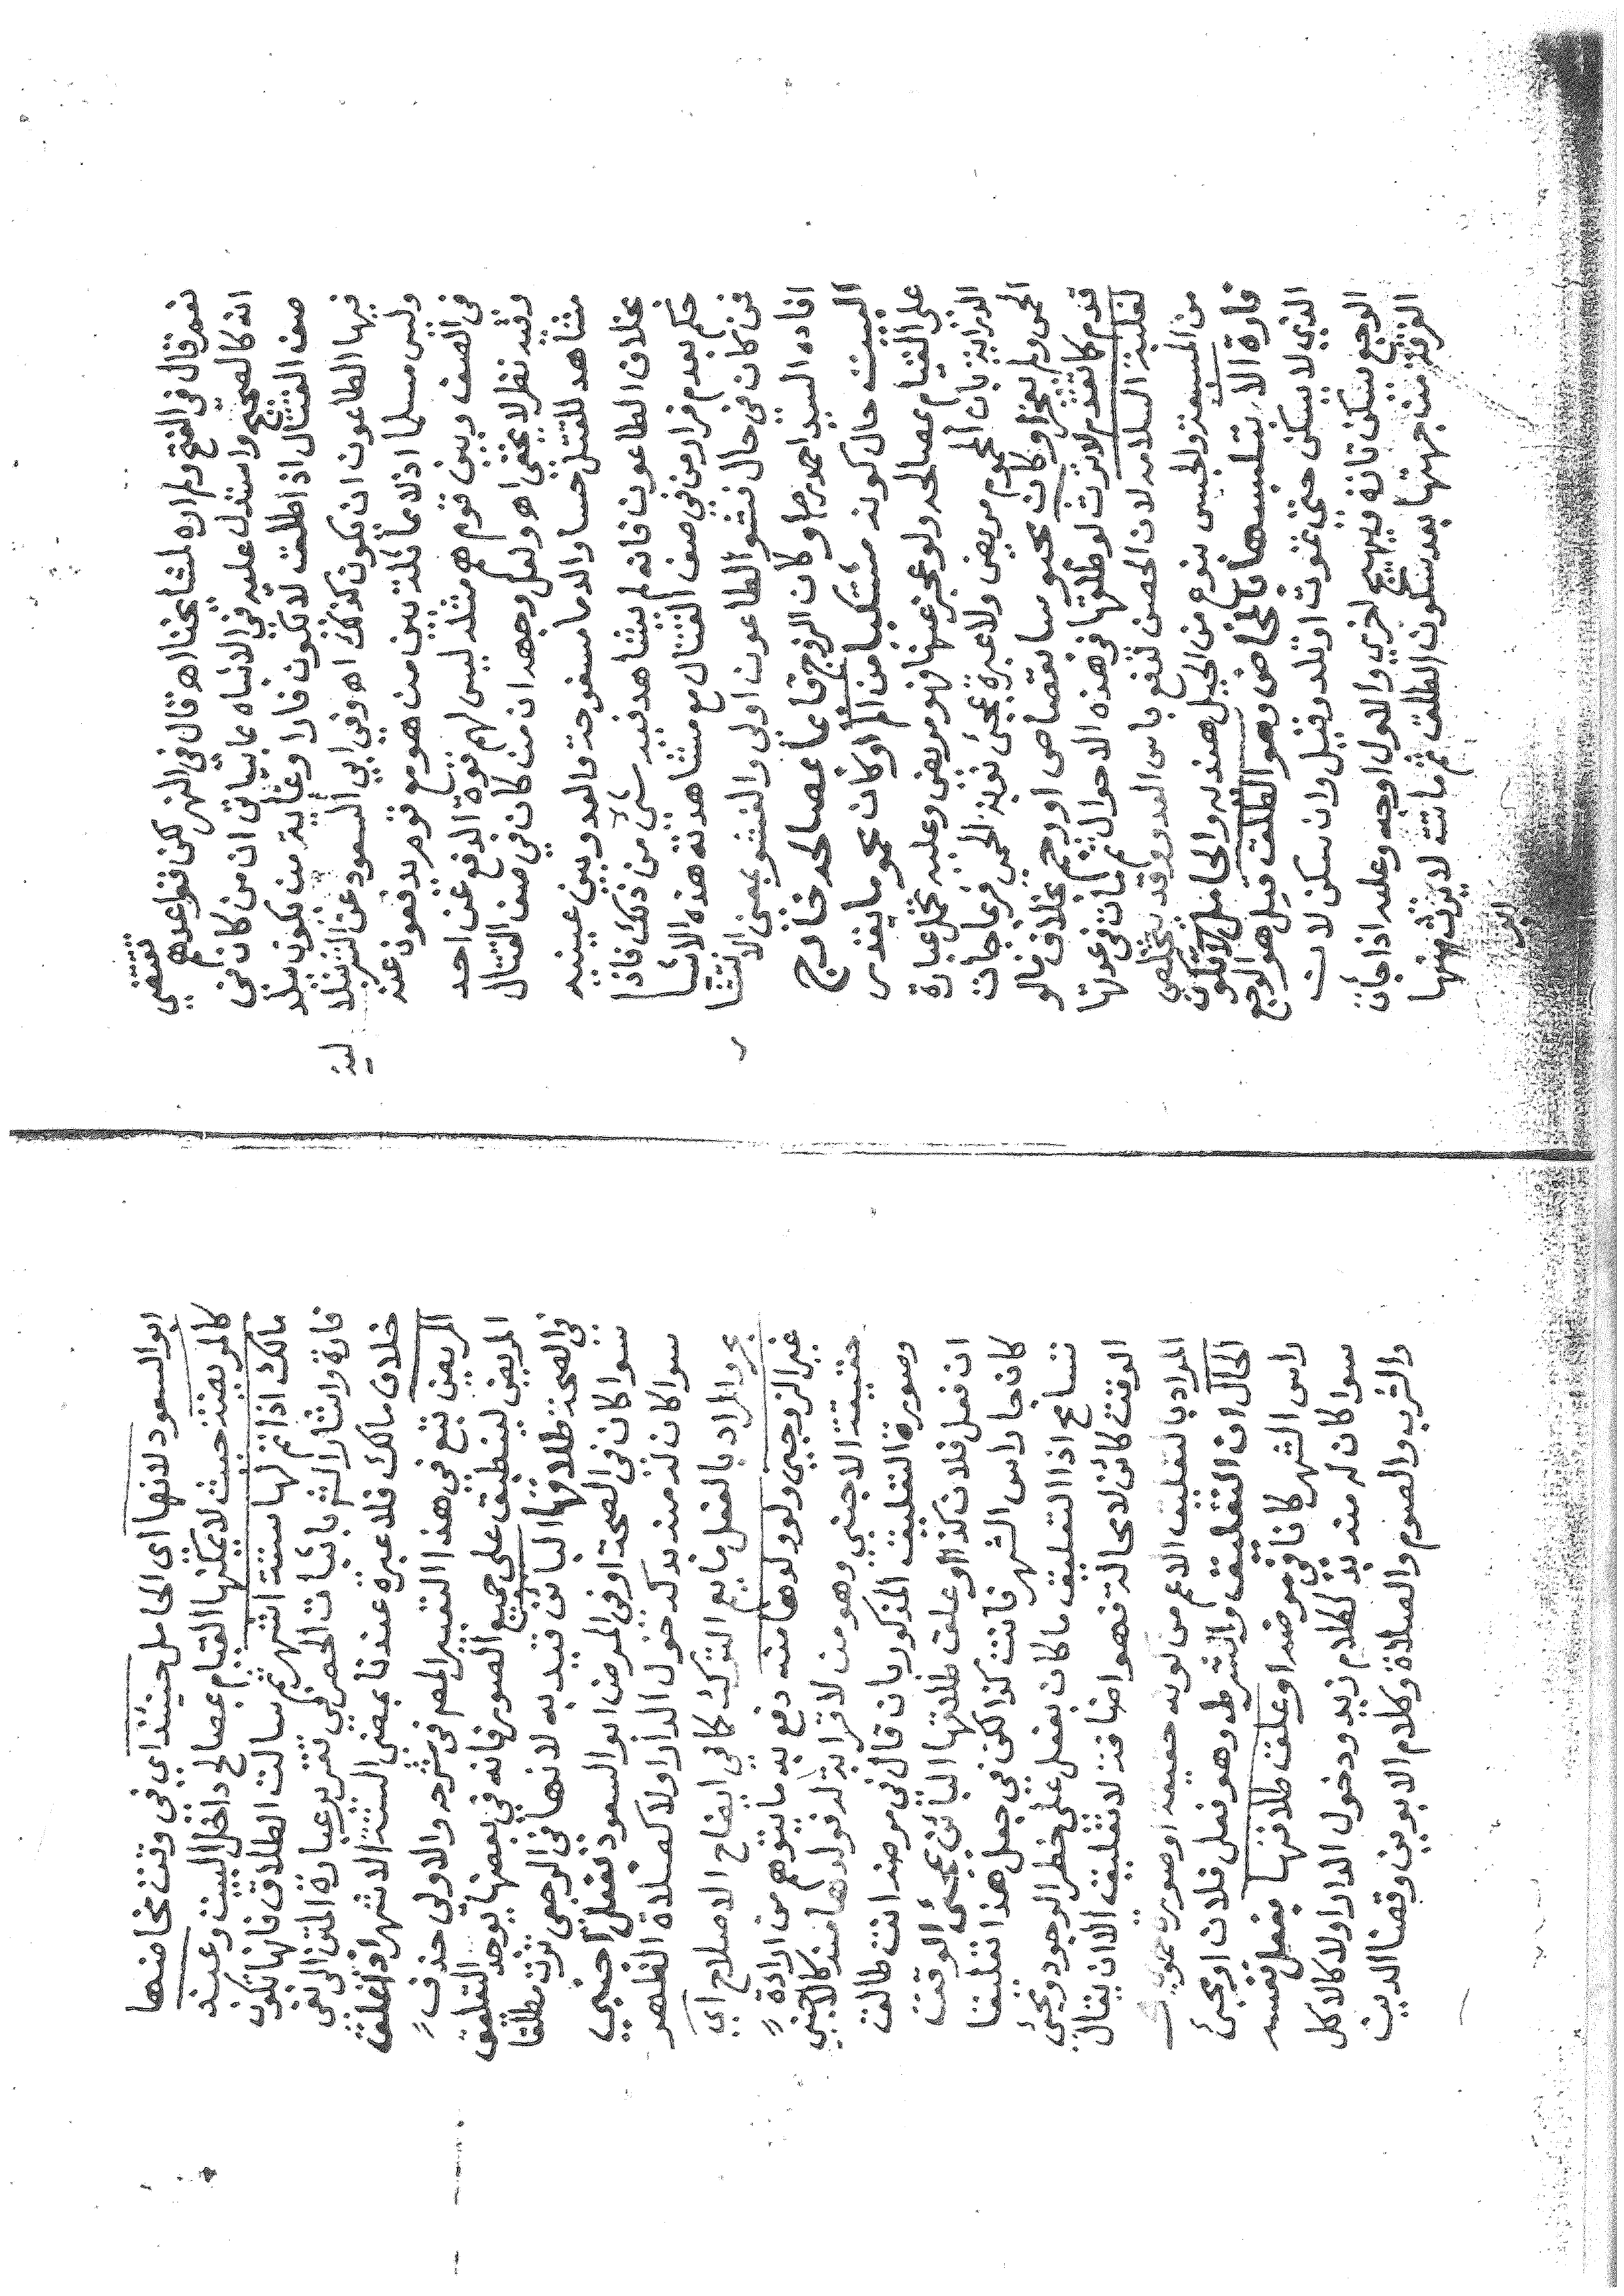 نعم قال في الفتح ولم اره لمشايخنا اه قال في النهر لكن قواعدهم تقتضي
انه كالصحيح واستدل عليه في الاشباه بما يأتي ان من كان في
صف القتال اذا طلق لا يكون فارا وغاية من يكون ببلد
فيها الطاعون ان يكون كذلك اه وفي ابي السعود عن الشرنبلالية
وليس مسلما اذ لا مماثلة بين من هو مع قوم يدفعون عنه
في الصف وبين قوم هم مثله ليس لهم قوة الدفع عن احد
وفيه نظر لا يخفى اه ولعل وجهه ان من كان في صف القتال
مشاهد للقتل حسا والدما مسفوحة والعدو بين عينيه
بخلاف الطاعون فانه لم يشاهد فيه شئ من ذلك فاذا
حكم بعدم فرار من في صف القتال مع مشاهدته هذه الاشيا
فمن كان في حال فشو الطاعون اولى والفشو بمعنى الانتشا
ر افاده السيد احمد او كان الزوج قائما بمصالحه خارج
البيت حال كونه مشتكيا من الم او كان محموما يقدر
على القيام بمصالحه ولو عجز عنها فهو مريض وعليه تحمل عبارة
البزازية بان المحموم مريض ولا عبرة بمجئ نوبة الحمى فربما جات
الحمى ولم يعجز او كان محبوسا بقصاص او رجم بخلاف مالو
قدم كما تقدم لا ترث لو طلقها في هذه الاحوال ثم مات في عدتها
لغلبة السلامه لان الحصن لدفع باس العدو وقد يتخلص
من المسبعة والحبس بنوع من الحيل هنديه والحامل لا تكون
فارة الا بتلبسها بالمخاض وهو الطلق قيل هو الوجع
الذي لا يسكن حتى تموت او تلد وقيل وان سكن لان
الوجع يسكن تارة ويهيج اخرى والاول اوجه وعليه اذا جات
الفرقة من جهتها بعد سكون الطلق ثم ماتت لا يرث منها
ابو
ابو السعود لانها اي الحامل حينئذ اي في وقت مخاضها
كالمريضة حيث لا يمكنها القيام بمصالح داخل البيت وعند
مالك اذا تم لها ستة اشهر ثم سالت الطلاق فانها تكون
فارة واشار الش باثبات الحصر في تقرير عبارة المتن الى نفي
خلاف مالك فلا عبرة عندنا بمضي الستة الاشهر اذا علق
المريض تبع في هذا التعبير المص في شرحه والاولى حذف
المريض لينطبق على جميع الصور فانه في بعضها يوجد التعليق
في الصحة طلاقها البائن قيد به لانها في الرجعي ترث مطلقا
سوا كان في الصحة او في المرض ابو السعود بفعل اجنبي
سوا كان له منه بد كدخول الدار اولا كصلاة الظهر
بحر والمراد بالفعل ما يعم الترك كما في ايضاح الاصلاح اي
غير الزوجين ولو ولدها منه دفع به ما يتوهم من ارادة
حقيقة الاجنبي وهو من لا قرابة له فولدها منه كالاجنبي
وصورة التعليق المذكور بان قال في مرضه انت طالق
ان فعل فلان كذا او علق طلقتها البائن بمجئ الوقت
كان جا راس الشهر فانت كذا لكن في جعل هذا تعليقا
تسامح اذ التعليق ما كان بفعل على خطر الوجود ومجئ
الوقت كائن لا محالة فهو اضافة لا تعليق الا ان يقال
المراد بالتعليق الاعم من كونه حقيقة او صورة حموي و
الحال ان التعليق والشرط وهو فعل فلان او مجئ
راس الشهر كانا في مرضه او علق طلاقها بفعل نفسه
سوا كان له منه بد ككلام زيد ودخول الدار اولا كالاكل
والشرب والصوم والصلاة وكلام الابوين وقضا الدين